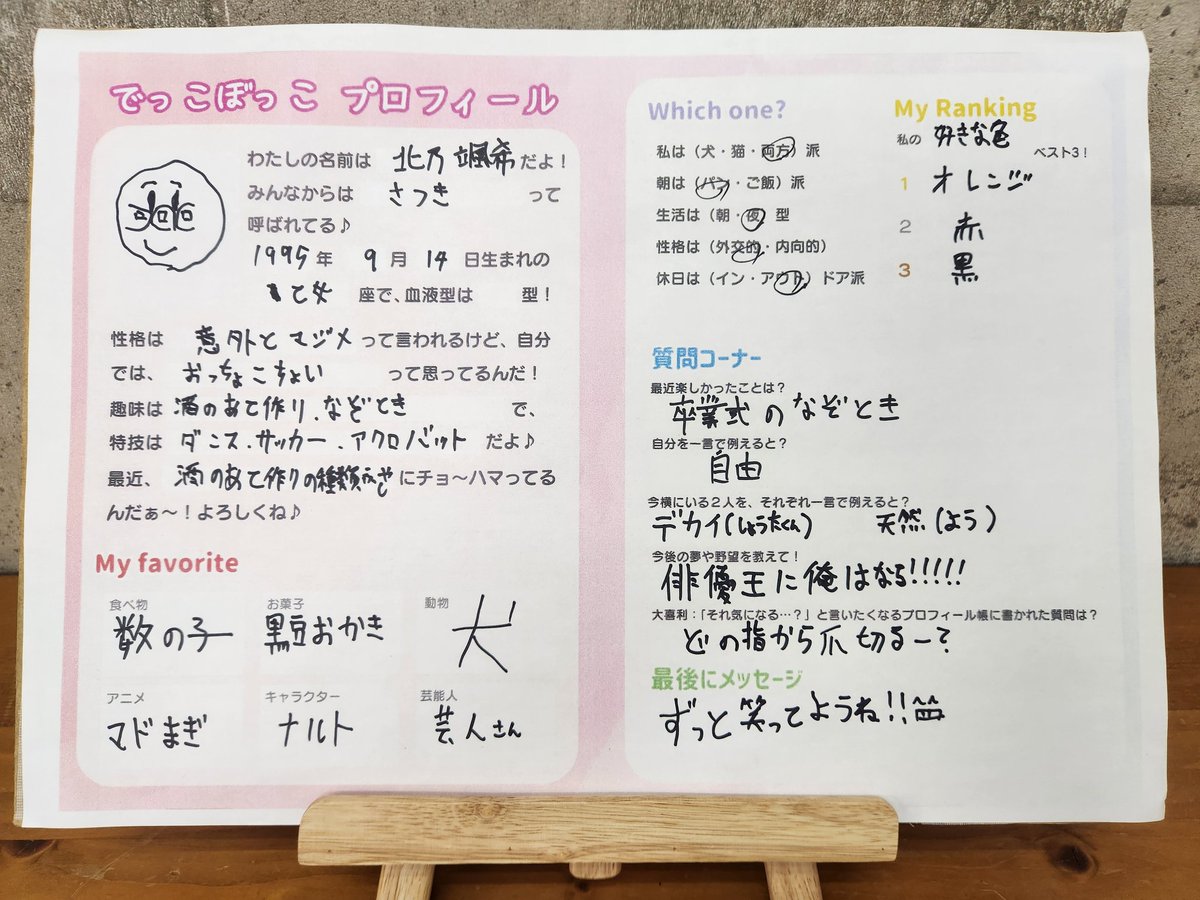 でっこぼっこ プロフィール
わたしの名前は 北乃 颯希 だよ!
みんなからは さつき って
呼ばれてる♪
1995年 9月 14日生まれの
おとめ座で、血液型は 型!
性格は 意外とマジメ って言われるけど、自分
では、 おっちょこちょい って思ってるんだ!
趣味は 酒のあて作り、なぞとき で、
特技は ダンス、サッカー、アクロバット だよ♪
最近、 酒のあて作りの種類ふやし にチョ〜ハマってる
んだぁ〜!よろしくね♪
My favorite
食べ物 お菓子 動物
数の子 黒豆おかき 犬
アニメ キャラクター 芸能人
マドまぎ ナルト 芸人さん
Which one?
私は(犬・猫・両方)派
朝は(パン・ご飯)派
生活は(朝・夜)型
性格は(外交的・内向的)
休日は(イン・アウト)ドア派
My Ranking
私の 好きな色 ベスト3!
1 オレンジ
2 赤
3 黒
質問コーナー
最近楽しかったことは?
卒業式のなぞとき
自分を一言で例えると?
自由
今横にいる2人を、それぞれ一言で例えると?
デカイ(しょうたくん) 天然(よう)
今後の夢や野望を教えて!
俳優王に俺はなる!!!!!
大喜利:「それ気になる…?」と言いたくなるプロフィール帳に書かれた質問は?
どの指から爪切るー?
最後にメッセージ
ずっと笑ってようね!!